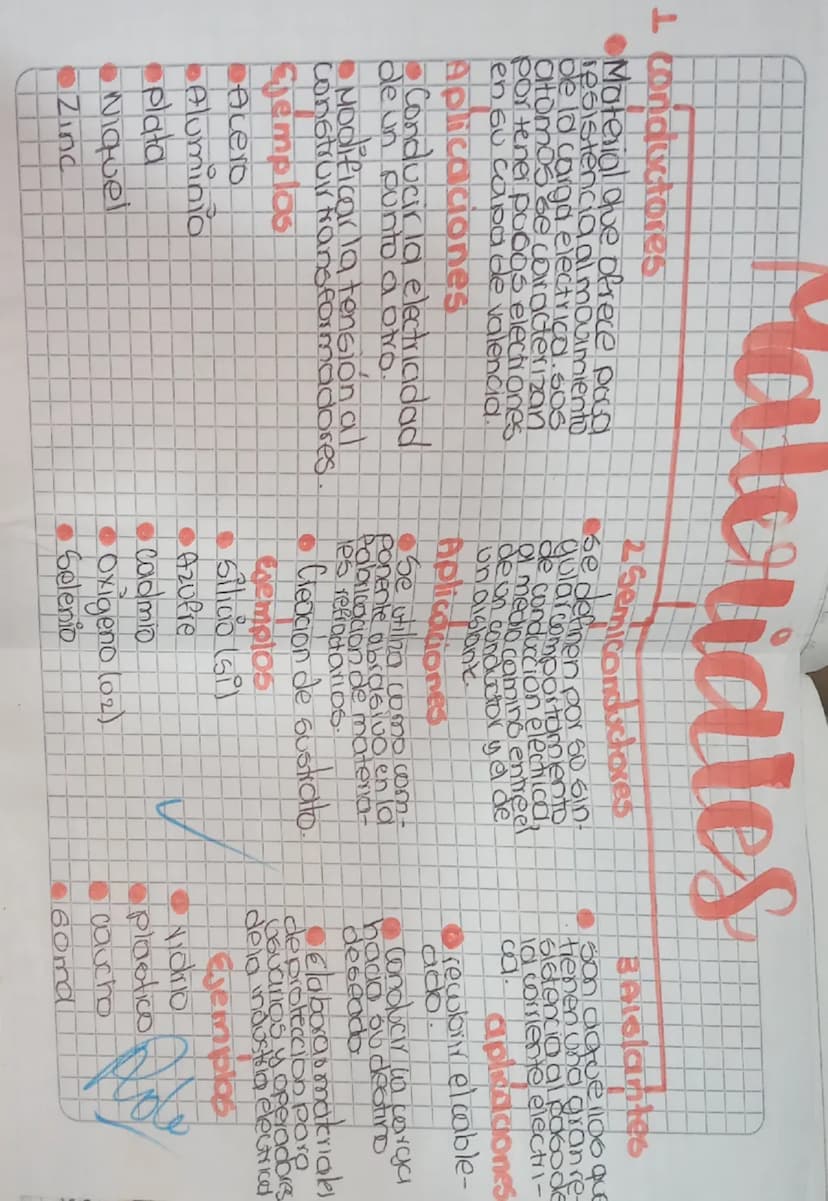 Materiales
1 Conductores
• Material que ofrece poca
resistencia al movimiento
de la carga electrica. sus
atomos se caracterizan
por tener pocos electrones
en su capa de valencia.
Aplicaciones
• Conducir la electricidad
de un punto a otro.
• Modificar la tensión al
construir transformadores.
Ejemplos
• Acero
• Aluminio
• plata
• Niquel
• Zinc
2 Semiconductores
• Se definen por su sin-
gular comportamiento
de conducción electrica,
al medio camino entre el
de un conductor y el de
un aislante.
Aplicaciones
• Se utiliza como com-
ponente abrasivo en la
fabricacion de materia-
les refractarios.
• Creacion de sustrato.
Ejemplos
• Silicio (si)
• Azufre
• Cadmio
• Oxigeno (o2)
• Selenio
3 Aislantes
• Son aquellos que
tienen una gran re-
sistencia al paso de
la corriente electri-
ca.
aplicaciones
• recubrir el cable-
ado.
• Conducir la carga
hacia su destino
deseado
• Elaboran materiales
de proteccion para
usuarios y operadores
de la industria electrica
Ejemplos
• Vidrio
• plastico
• caucho
• Goma